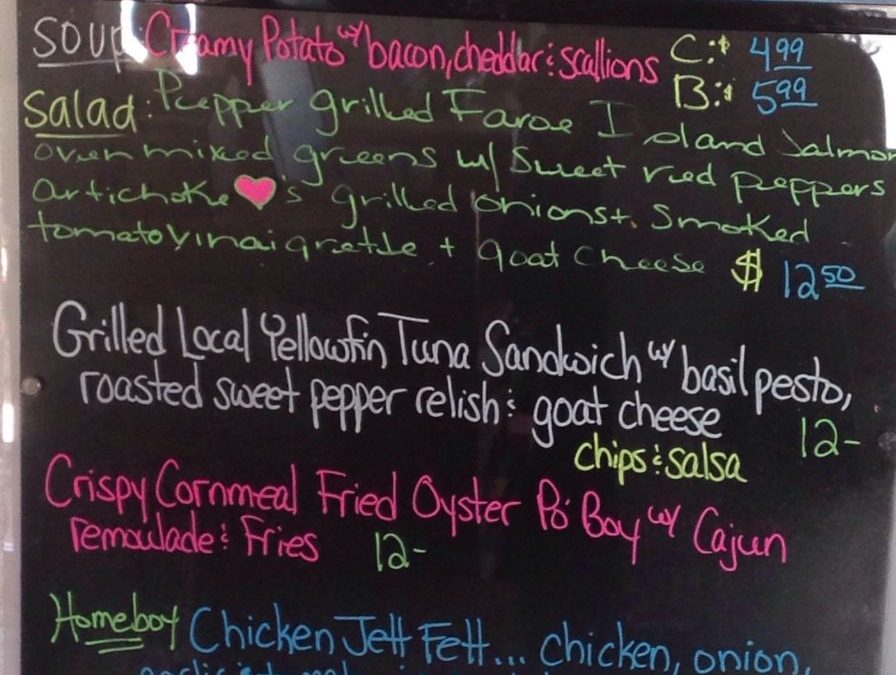 SOUP Creamy Potato w/ bacon, cheddar & scallions C:$ 4.99
B:$ 5.99
Salad: Pepper grilled Faroe Island Salmon
over mixed greens w/ Sweet red peppers
artichoke ♥'s grilled onions + Smoked
tomato vinaigrette + goat cheese $ 12.50
Grilled Local Yellowfin Tuna Sandwich w/ basil pesto,
roasted sweet pepper relish & goat cheese 12-
chips & salsa
Crispy Cornmeal Fried Oyster Po' Boy w/ Cajun
remoulade & Fries 12-
Homeboy Chicken Jett Fett... chicken, onion,